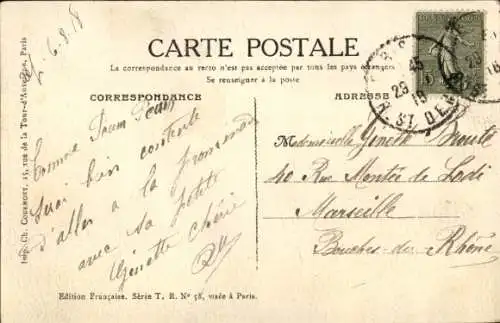 5.6.9.18
CARTE POSTALE
La correspondance au recto n'est pas acceptée par tous les pays étrangers
Se renseigner à la poste
CORRESPONDANCE
Comme
serai bien contente
d'aller a la promenade
avec sa petite
Ginette chérie
ADRESSE
Mademoiselle Ginette
40 Rue Montée de Lodi
Marseille
Bouches-du-Rhône
Edition Française. Série T. R. N° 58, visée à Paris.
Imp. Ch. Courmont, rue de la Tour-d'Auvergne, Paris
PARIS
ST DENIS